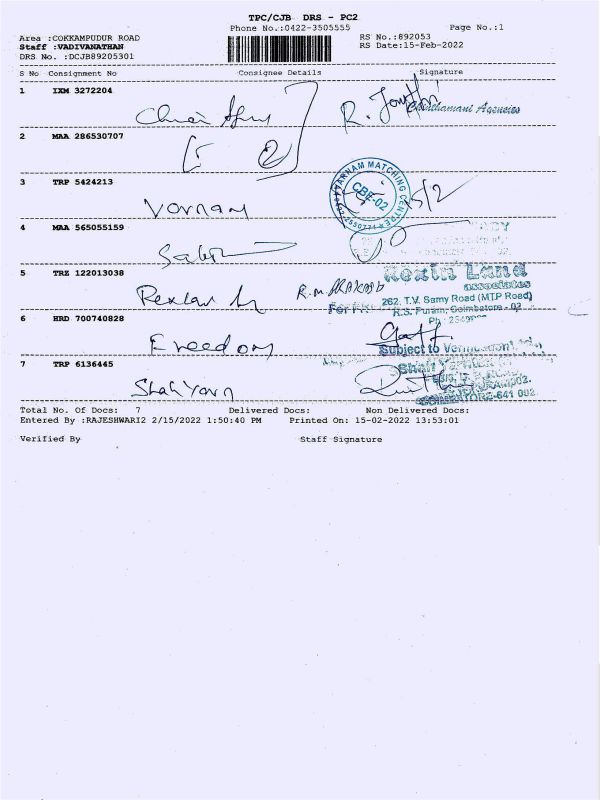 TPC/CJB DRS - PC2
Phone No.:0422-3505555
Page No.:1
Area :COKKAMPUDUR ROAD
RS No.:892053
Staff :VADIVANATHAN
RS Date:15-Feb-2022
DRS No. :DCJB89205301
S No Consignment No Consignee Details Signature
1 IXM 3272204
R.
Agencies
2 MAA 286530707
3 TRP 5424213
Varnam
VARNAM MATCHING CENTRE
CBE-02
15/2
4 MAA 565055159
5 TRZ 122013038
R.M. PRAKASH
Rexin Land
associates
262, T.V. Samy Road (MTP Road)
R.S. Puram, Coimbatore - 02
6 HRD 700740828
Freedom
Subject to Verification
7 TRP 6136445
Shah Yarn
COIMBATORE-641 002.
Total No. Of Docs: 7 Delivered Docs: Non Delivered Docs:
Entered By :RAJESHWARI2 2/15/2022 1:50:40 PM Printed On: 15-02-2022 13:53:01
Verified By Staff Signature